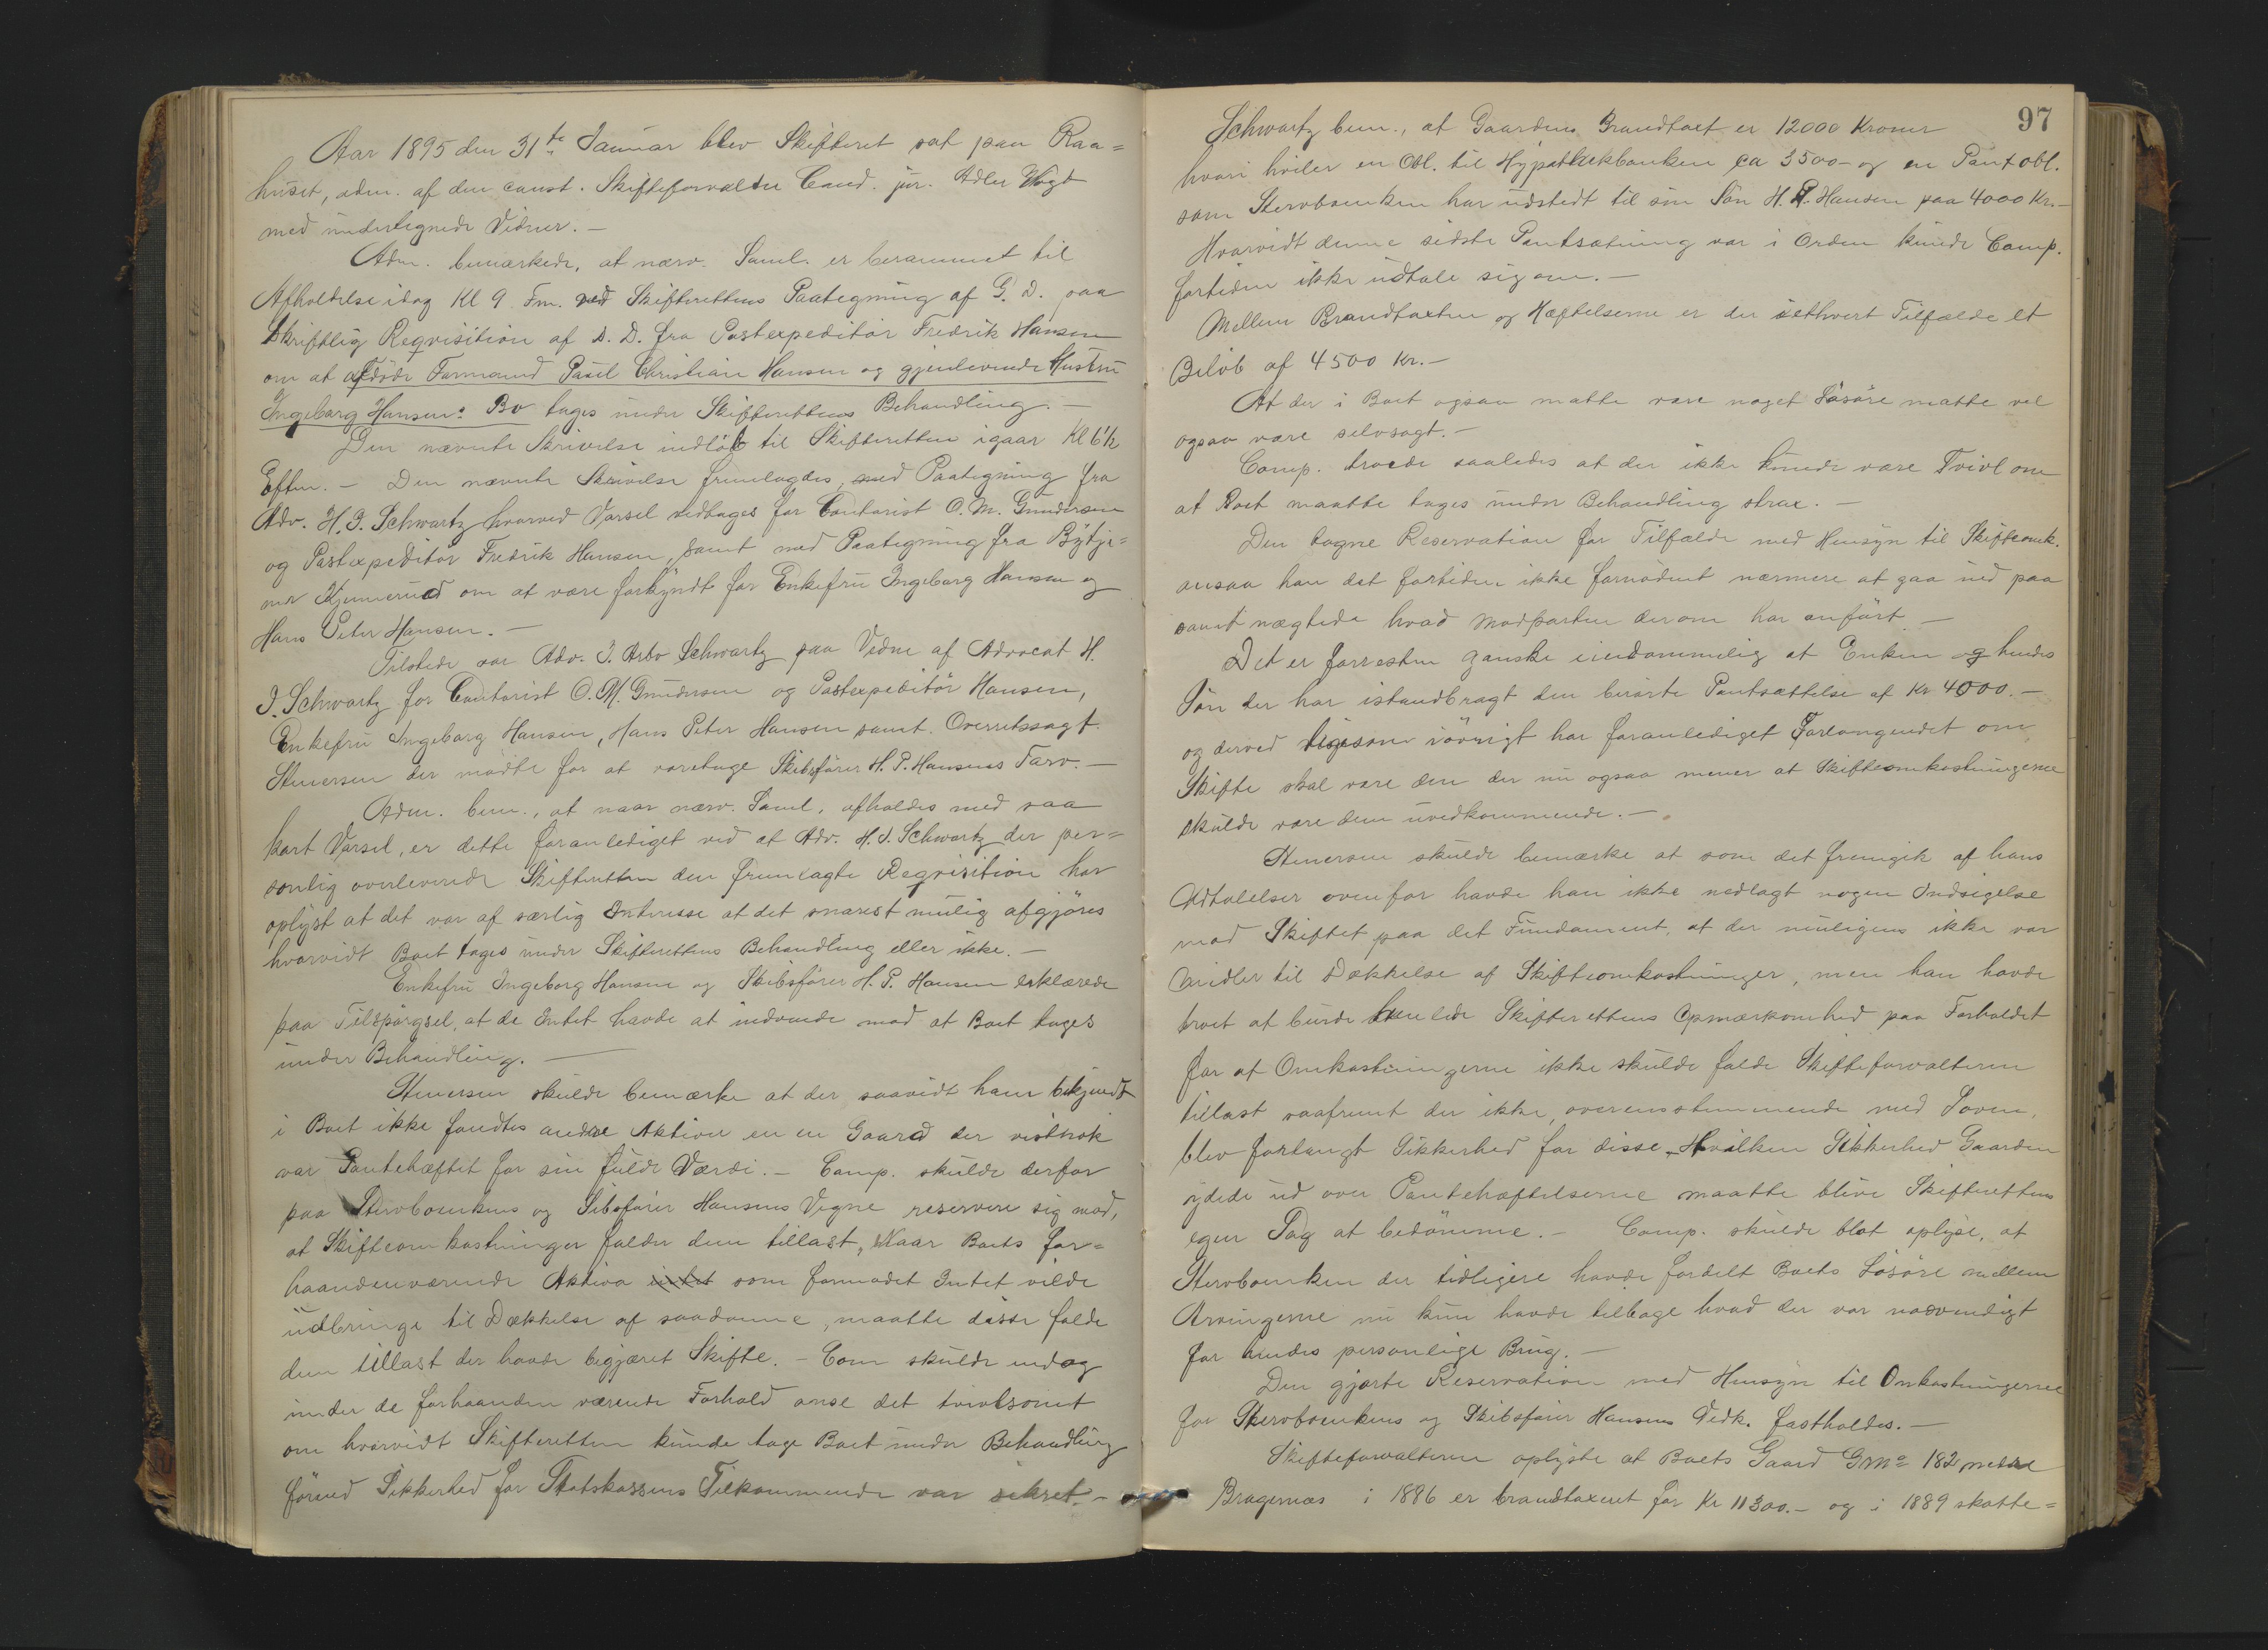 Aar 1895 den 31te Januar blev Skifteret sat paa Raa=
huset, adm. af den const. Skifteforvalter Cand. jur. Adler Vogt
med undertegnede Vidner. —
Adm. bemærkede, at nærv. Saml. er berammet til
Afholdelse idag Kl 9 Fm. ved Skifterettens Paategning af G. D. paa
Skriftlig Reqvisition af D. D. fra Postexpeditör Fredrik Hansen
om at afdöde Formand Paul Christian Hansen og gjenlevende Hustru
Ingeborg Hansens Bo tages under Skifterettens Behandling. —
Den nævnte Skrivelse indlöb til Skifteretten igaar Kl 6½
Efterm. — Den nævnte Skrivelse fremlagdes, med Paategning fra
Adv. H. J. Schwartz hvorved Varsel vedtages for Contorist O. M. Gundersen
og Postexpeditör Fredrik Hansen, samt med Paategning fra Bytje=
ner Kjennerud om at være forkyndt for Enkefru Ingeborg Hansen og
Hans Peter Hansen. —
Tilstede var Adv. J. Arbo Schwartz paa Vegne af Advocat H.
J. Schwartz for Contorist O. M. Gundersen og Postexpeditör Hansen,
Enkefru Ingeborg Hansen, Hans Peter Hansen samt Overretssagf.
Stenersen der mödte for at varetage Skibsförer H. P. Hansens Tarv. —
Adm. bem., at naar nærv. Saml. afholdes med saa
kort Varsel, er dette foranlediget ved at Adv. H. J. Schwartz der per=
sonlig overleverede Skifteretten den fremlagte Reqvisition har
oplyst at det var af særlig Interesse at det snarest mulig afgjöres
hvorvidt Boet tages under Skifterettens Behandling eller ikke. —
Enkefru Ingeborg Hansen og Skibsförer H. P. Hansen erklærede
paa Tilspörgsel, at de Intet havde at indvende mod at Boet tages
under Behandling. —
Stenersen skulde bemærke at der saavidt ham bekjendt
i Boet ikke fandtes andre Aktiver en en Gaard der vistnok
var Pantehæftet for sin fulde Værdi. — Comp. skulde derfor
paa Stervboenkens og Skibsförer Hansens Vegne reservere sig mod,
at Skifteomkostninger falder dem tillast, Naar Boets for=
haandenværende Aktiva intet som formodet Intet vilde
udbringe til Dækkelse af saadanne, maatte disse falde
dem tillast der havde begjæret Skifte. — Com skulde endog
under de forhaanden værende Forhold anse det tvivlsomt
om hvorvidt Skifteretten kunde tage Boet under Behandling
förend Sikkerhed for Statskassens Tilkommende var sikret. —
97
Schwartz bem., at Gaardens Brandtaxt er 12000 Kroner
hvori hviler en Obl. til Hypothekbanken ca 3500 - og en Pantobl.
som Stervboenken har udstedt til sin Sön H. P. Hansen paa 4000 Kr. —
Hvorvidt denne sidste Pantsætning var i Orden kunde Comp.
fortiden ikke udtale sig om. —
Mellem Brandtaxten og Hæftelserne er der iethvert Tilfælde et
Belöb af 4500 Kr. —
At der i Boet ogsaa matte være noget Lösöre matte vel
ogsaa være selvsagt. —
Comp. troede saaledes at der ikke kunde være Tvivl om
at Boet maatte tages under Behandling strax. —
Den tagne Reservation for Tilfælde med Hensyn til Skifteomk.
ansaa han det fortiden ikke fornödent nærmere at gaa ind paa
samt nægtede hvad Modparten derom har anfört —
Det er forresten ganske eiendommelig at Enken og hendes
Sön der har istandbragt den berörte Pantsættelse af Kr 4000. —
og derved ligesom iövrigt har foranlediget Forlangendet om
Skifte skal være dem der nu ogsaa mener at Skifteomkostningerne
skulde være dem uvedkommende. —
Stenersen skulde bemærke at som det fremgik af hans
Udtalelser ovenfor havde han ikke nedlagt nogen Indsigelse
mod Skiftet paa det Fundament, at der muligens ikke var
Midler til Dækkelse af Skifteomkostninger, men han havde
troet at burde henlede Skifterettens Opmærksomhed paa Forholdet
for at Omkostningerne ikke skulde falde Skifteforvalteren
tillast saafremt der ikke, overensstemmende med Loven,
blev forlangt Sikkerhed for disse, Hvilken Sikkerhed Gaarden
ydede ud over Pantehæftelserne maatte blive Skifterettens
egen Sag at bedömme. — Comp. skulde blot oplyse, at
Stervboenken der tidligere havde fordelt Boets Lösöre mellem
Arvingerne nu kun havde tilbage hvad der var nödvendigt
for hendes personlige Brug. —
Den gjorte Reservation med Hensyn til Omkostningerne
for Stervboenkens og Skibsförer Hansens Vedk. fastholdes. —
Skifteforvalteren oplyste at Boets Gaard Gmo 182 nedre
Bragernæs i 1886 er brandtaxeret for Kr 11300. — og i 1889 skatte=